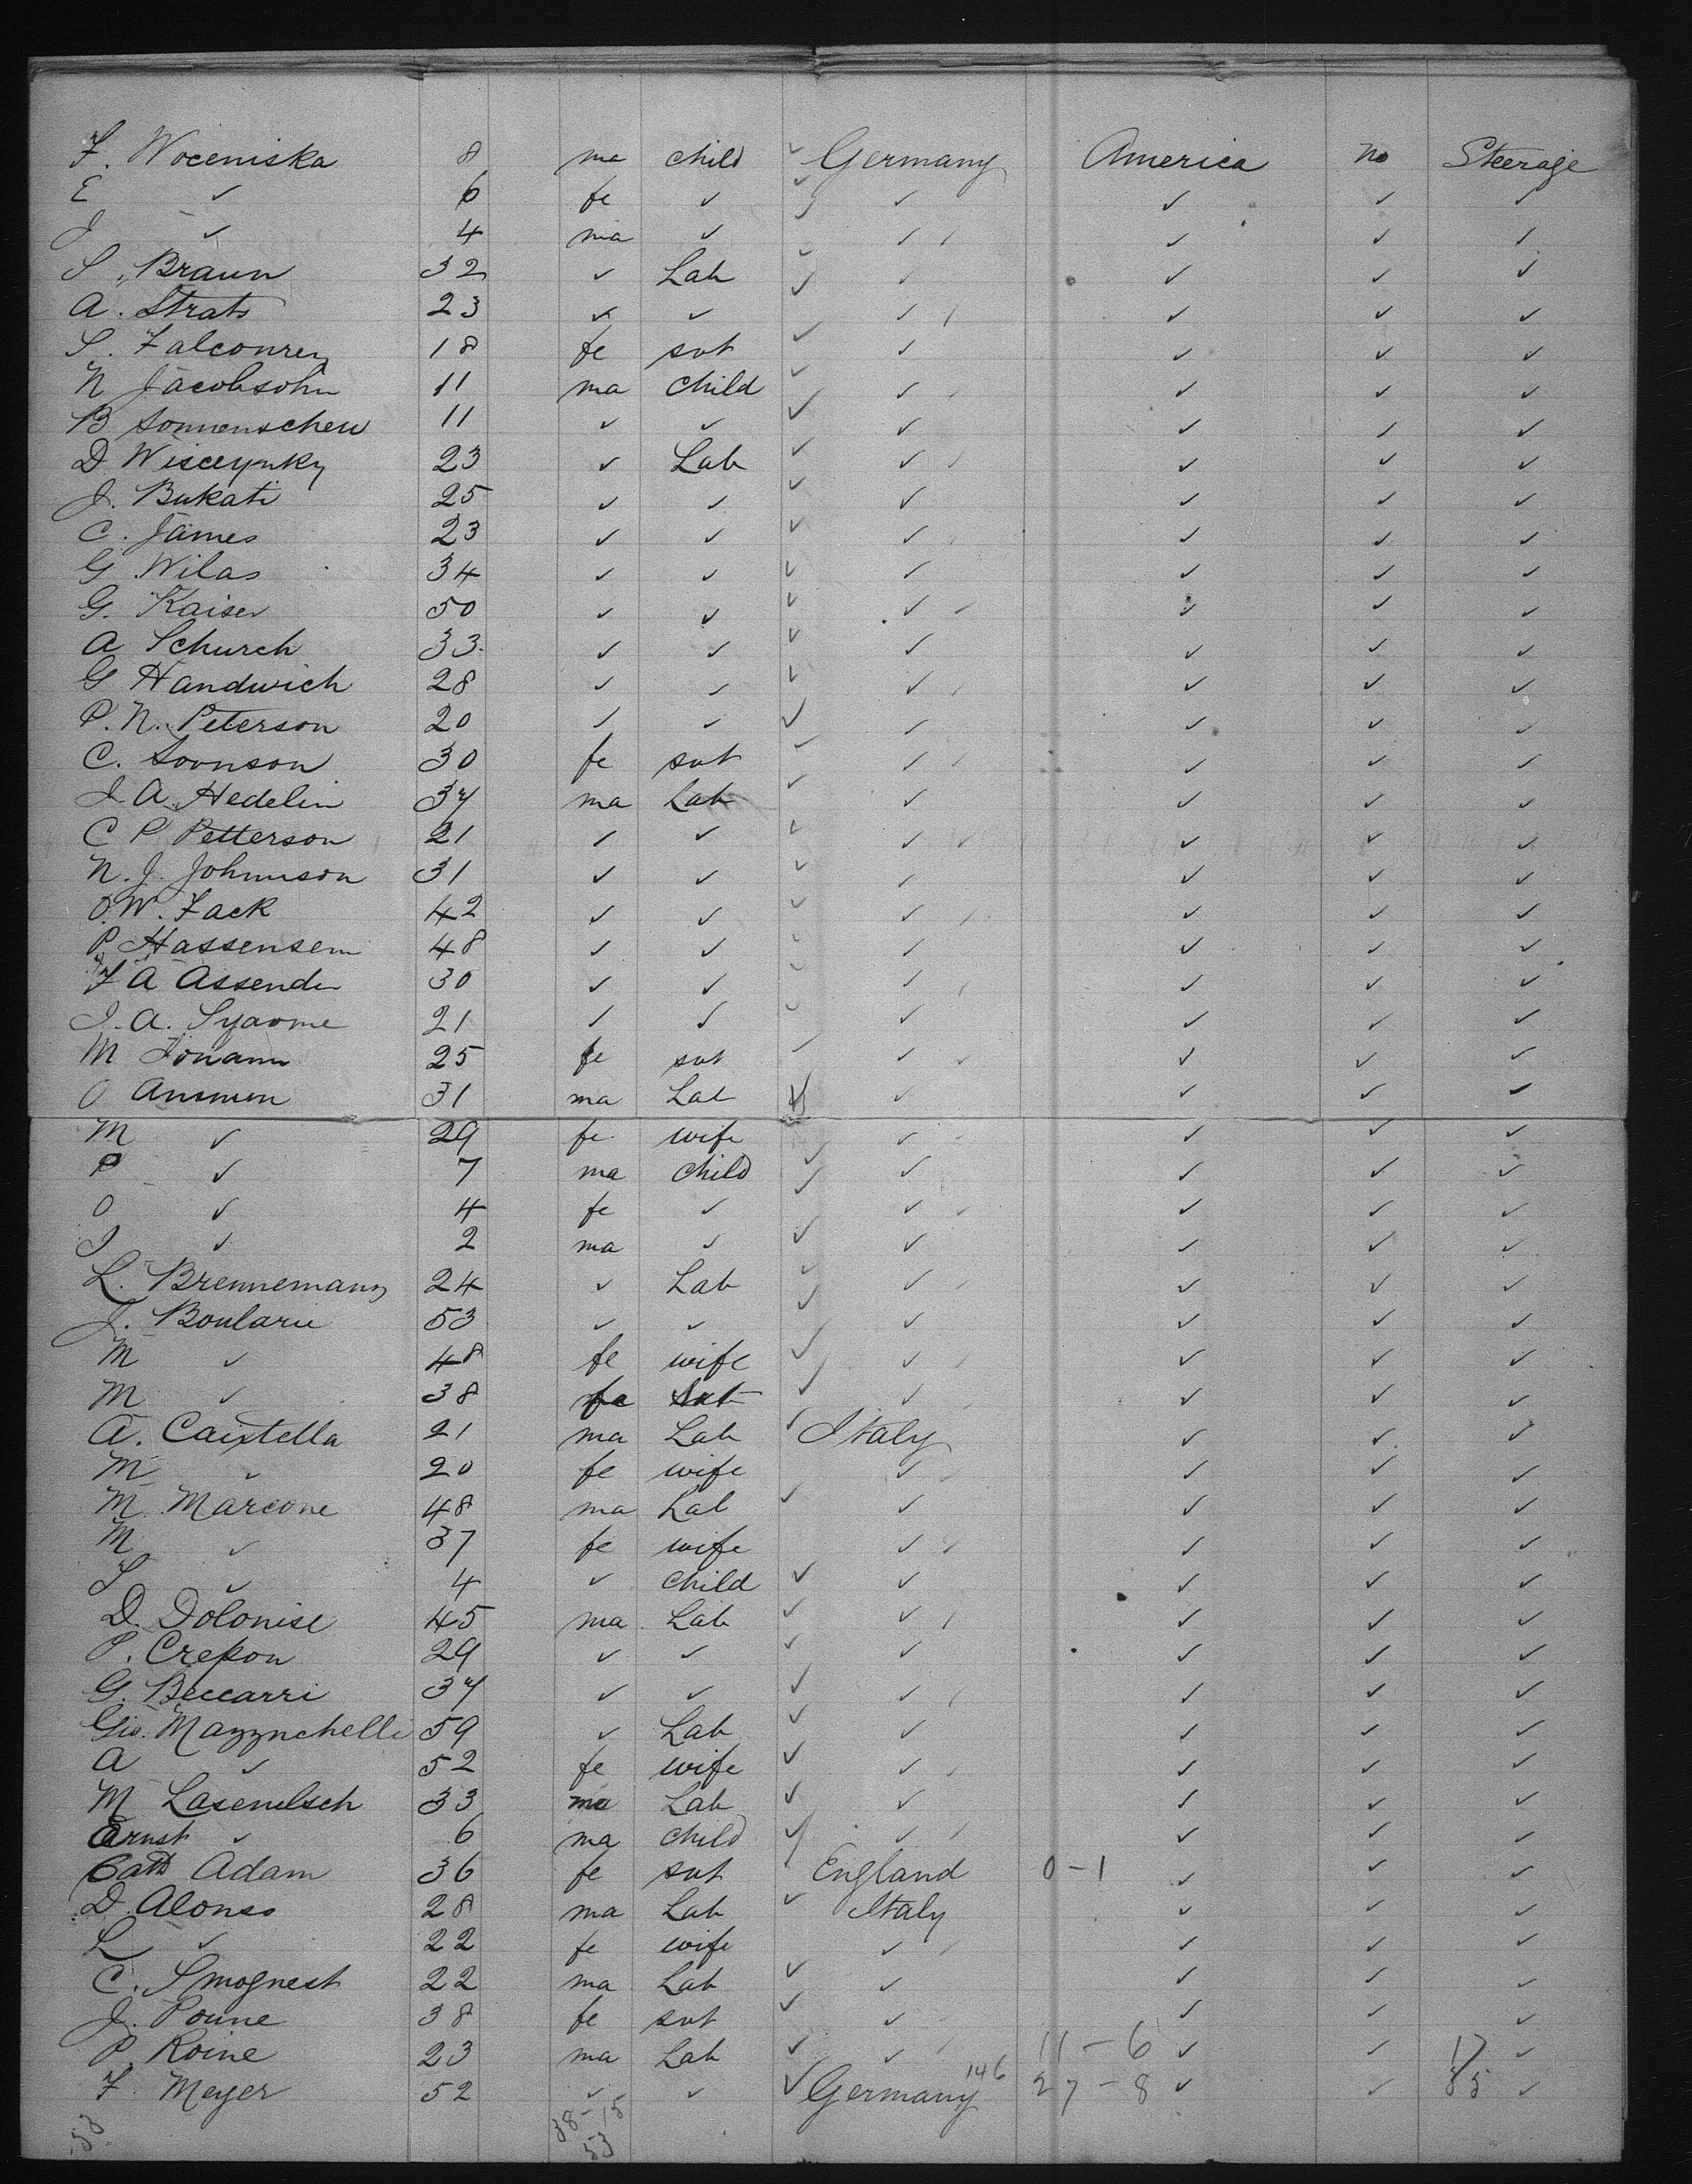 F. Woceniska 8 ma child ✓ Germany America no Steerage
E ✓ 6 fe ✓ ✓ ✓ ✓ ✓ ✓
J ✓ 4 ma ✓ ✓ ✓ ✓ ✓ ✓
S. Braun 32 ✓ Lab ✓ ✓ ✓ ✓ ✓
A. Strats 23 ✓ ✓ ✓ ✓ ✓ ✓
S. Falconrey 18 fe svt ✓ ✓ ✓ ✓ ✓
N Jacobsohn 11 ma child ✓ ✓ ✓ ✓ ✓
B Sonnenschein 11 ✓ ✓ ✓ ✓ ✓ ✓ ✓
D Wisceynky 23 ✓ Lab ✓ ✓ ✓ ✓ ✓
J. Bukati 25 ✓ ✓ ✓ ✓ ✓ ✓ ✓
C. James 23 ✓ ✓ ✓ ✓ ✓ ✓ ✓
G Wilas 34 ✓ ✓ ✓ ✓ ✓ ✓ ✓
G. Kaiser 50 ✓ ✓ ✓ ✓ ✓ ✓ ✓
A Schurch 33 ✓ ✓ ✓ ✓ ✓ ✓ ✓
G Handwich 28 ✓ ✓ ✓ ✓ ✓ ✓ ✓
P. N. Peterson 20 ✓ ✓ ✓ ✓ ✓ ✓ ✓
C. Svonson 30 fe svt ✓ ✓ ✓ ✓ ✓
J. A. Hedelin 37 ma Lab ✓ ✓ ✓ ✓ ✓
C P Petterson 21 ✓ ✓ ✓ ✓ ✓ ✓ ✓
N. J. Johnnson 31 ✓ ✓ ✓ ✓ ✓ ✓ ✓
O. W. Fack 42 ✓ ✓ ✓ ✓ ✓ ✓ ✓
P. Hassensem 48 ✓ ✓ ✓ ✓ ✓ ✓ ✓
F A Assender 30 ✓ ✓ ✓ ✓ ✓ ✓ ✓
J. A. Syaome 21 ✓ ✓ ✓ ✓ ✓ ✓ ✓
M Jonann 25 fe svt ✓ ✓ ✓ ✓ ✓
O Ammen 31 ma Lab ✓ ✓ ✓ ✓ ✓
M ✓ 29 fe wife ✓ ✓ ✓ ✓
P ✓ 7 ma child ✓ ✓ ✓ ✓ ✓
O ✓ 4 fe ✓ ✓ ✓ ✓ ✓ ✓
J ✓ 2 ma ✓ ✓ ✓ ✓ ✓ ✓
L. Brennemann 24 ✓ Lab ✓ ✓ ✓ ✓ ✓
J. Boularie 53 ✓ ✓ ✓ ✓ ✓ ✓ ✓
M ✓ 48 fe wife ✓ ✓ ✓ ✓ ✓
M ✓ 38 fe svt ✓ ✓ ✓ ✓ ✓
A. Caixtella 21 ma Lab ✓ Italy ✓ ✓ ✓
M ✓ 20 fe wife ✓ ✓ ✓ ✓
M Marcone 48 ma Lab ✓ ✓ ✓ ✓ ✓
M ✓ 37 fe wife ✓ ✓ ✓ ✓
S ✓ 4 ✓ child ✓ ✓ ✓ ✓ ✓
D. Dolonise 45 ma Lab ✓ ✓ ✓ ✓ ✓
P. Crepon 29 ✓ ✓ ✓ ✓ ✓ ✓ ✓
G. Beccarri 37 ✓ ✓ ✓ ✓ ✓ ✓ ✓
Gio. Mazznchelli 59 ✓ Lab ✓ ✓ ✓ ✓ ✓
A ✓ 52 fe wife ✓ ✓ ✓ ✓ ✓
M Lasenelsch 33 ma Lab ✓ ✓ ✓ ✓ ✓
Ernst ✓ 6 ma child ✓ ✓ ✓ ✓ ✓
Cath Adam 36 fe svt England 0-1 ✓ ✓ ✓
D. Alonso 28 ma Lab ✓ Italy ✓ ✓ ✓
L ✓ 22 fe wife ✓ ✓ ✓ ✓
C. Smognest 22 ma Lab ✓ ✓ ✓ ✓ ✓
J. Poune 38 fe svt ✓ ✓ ✓ ✓ ✓
P. Roine 23 ma Lab ✓ ✓ 11-6 ✓ ✓ 17 ✓
F. Meyer 52 ✓ ✓ ✓ Germany 146 27-8 ✓ ✓ ✓
53 38-15
53